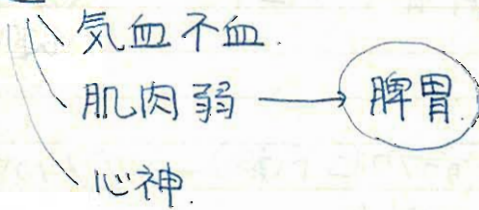 気血不血.
肌肉弱 → 脾胃.
心神.